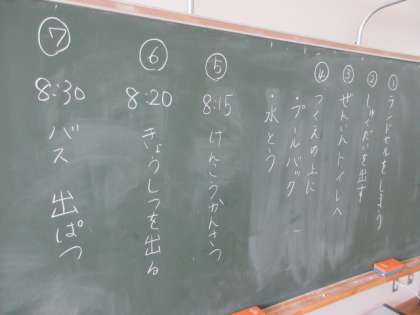 ① ランドセルをしまう
② しゅくだいを出す
③ ぜんいんトイレへ
④ つくえの上に
・プールバック
・水とう
⑤ 8:15 けんこうかんさつ
⑥ 8:20 きょうしつを出る
⑦ 8:30 バス 出ぱつ